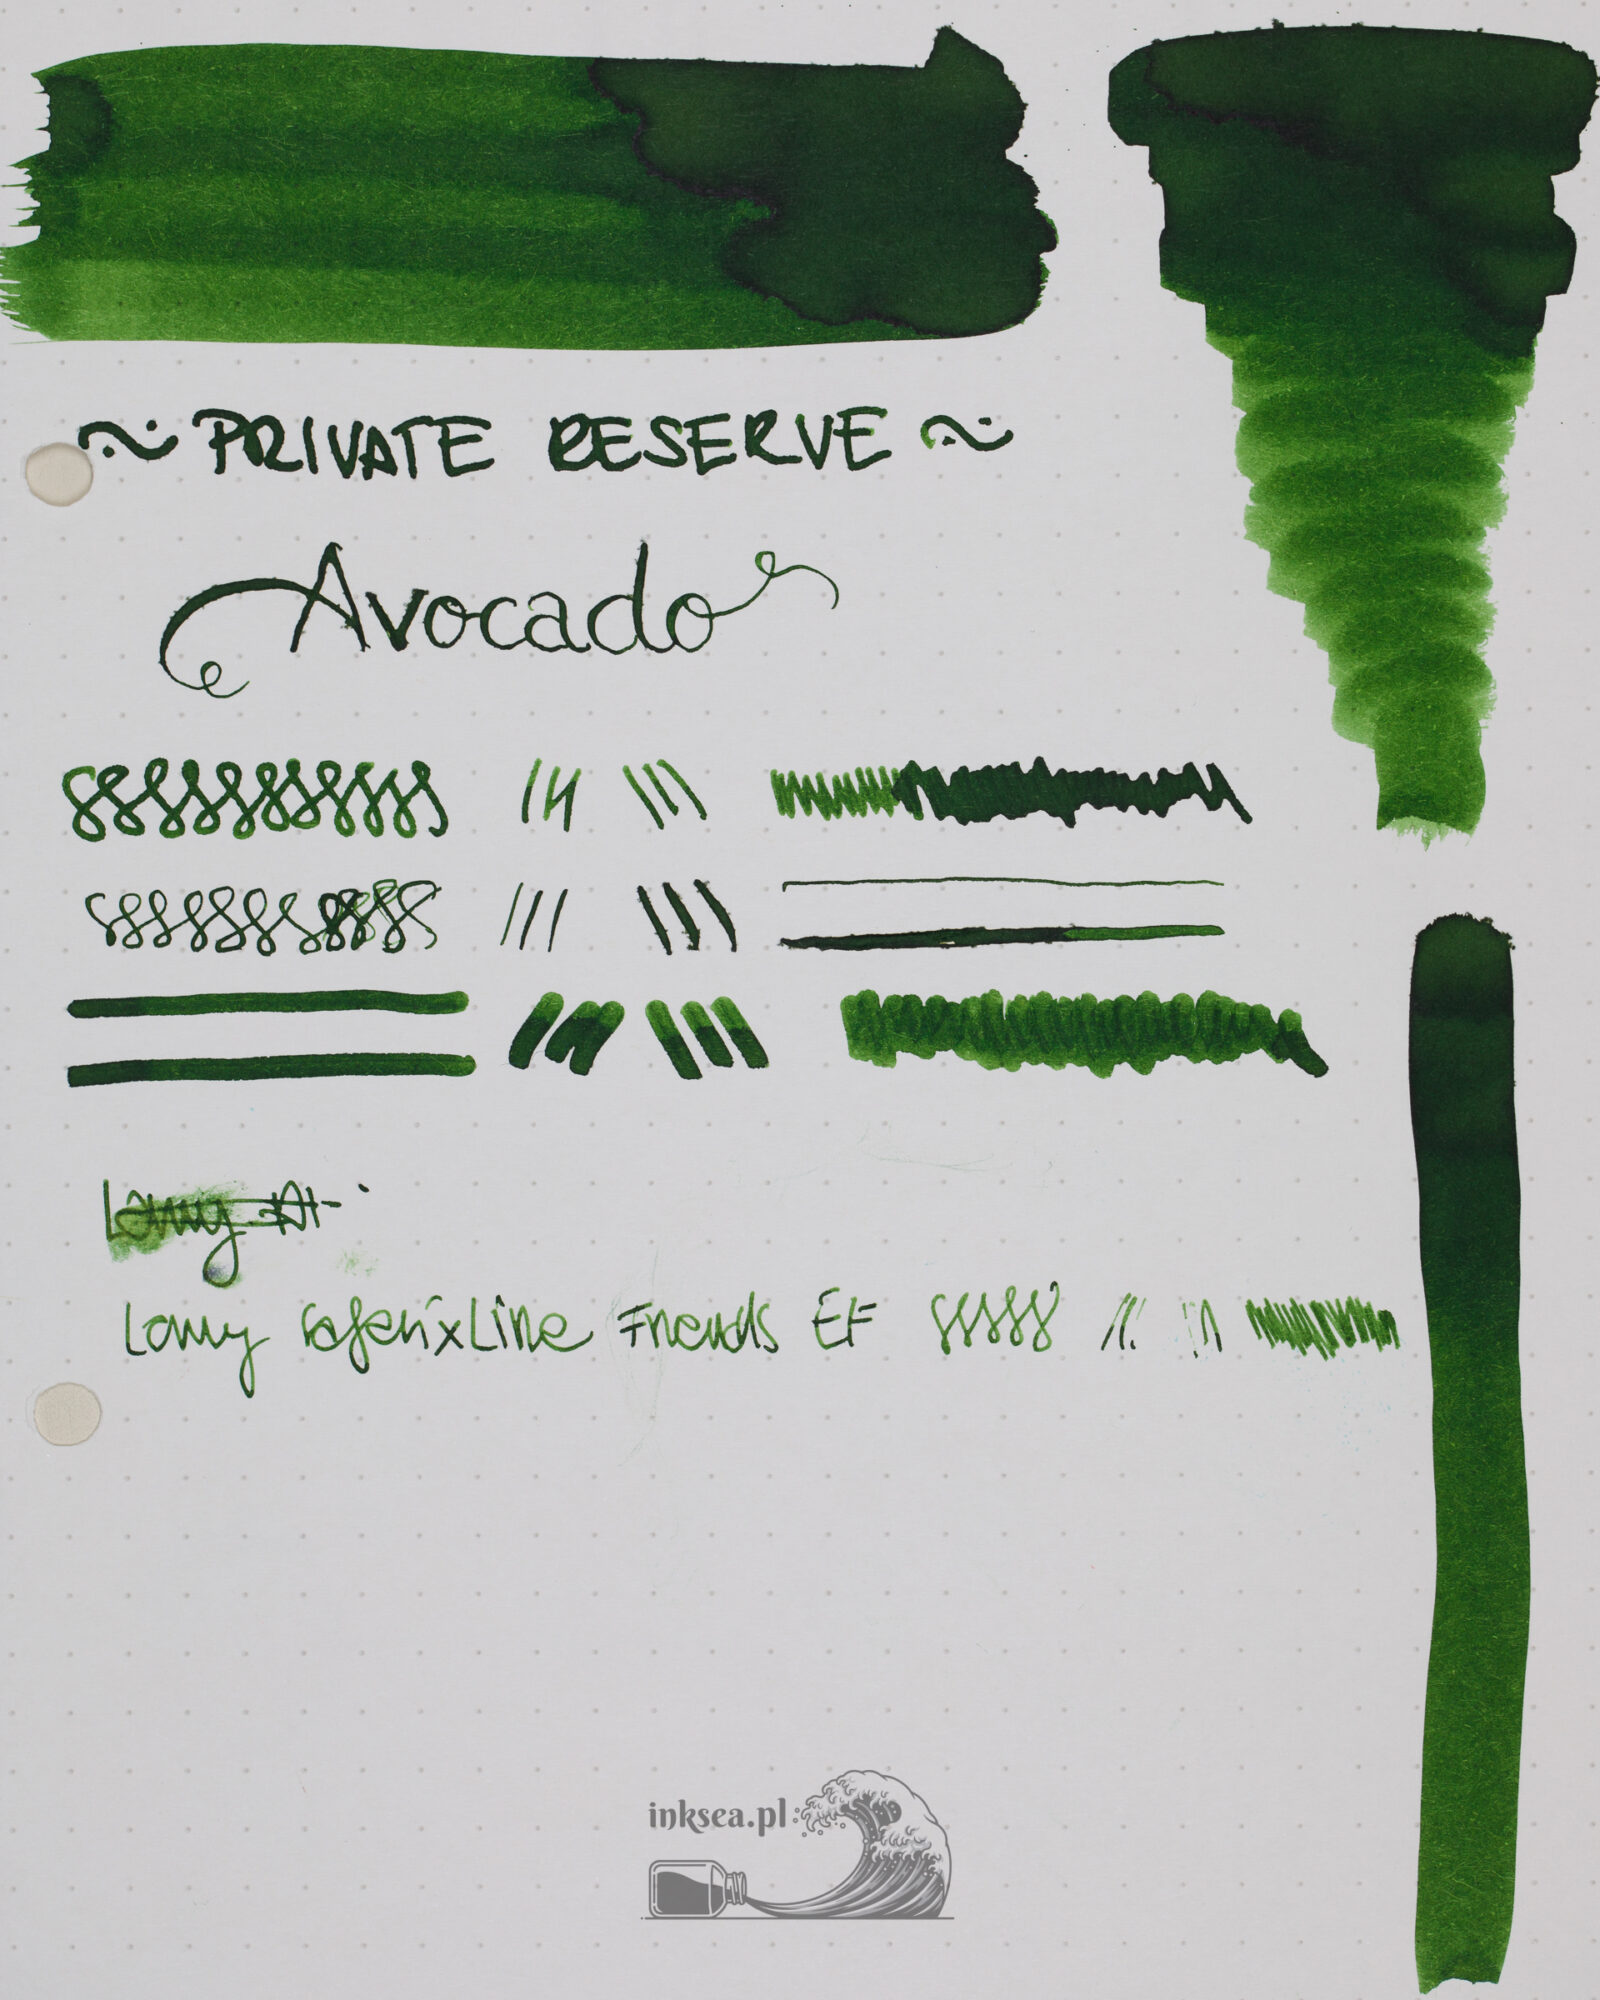 ~ PRIVATE RESERVE ~
Avocado
Lamy
Lamy Safari x Line Friends EF
inksea.pl